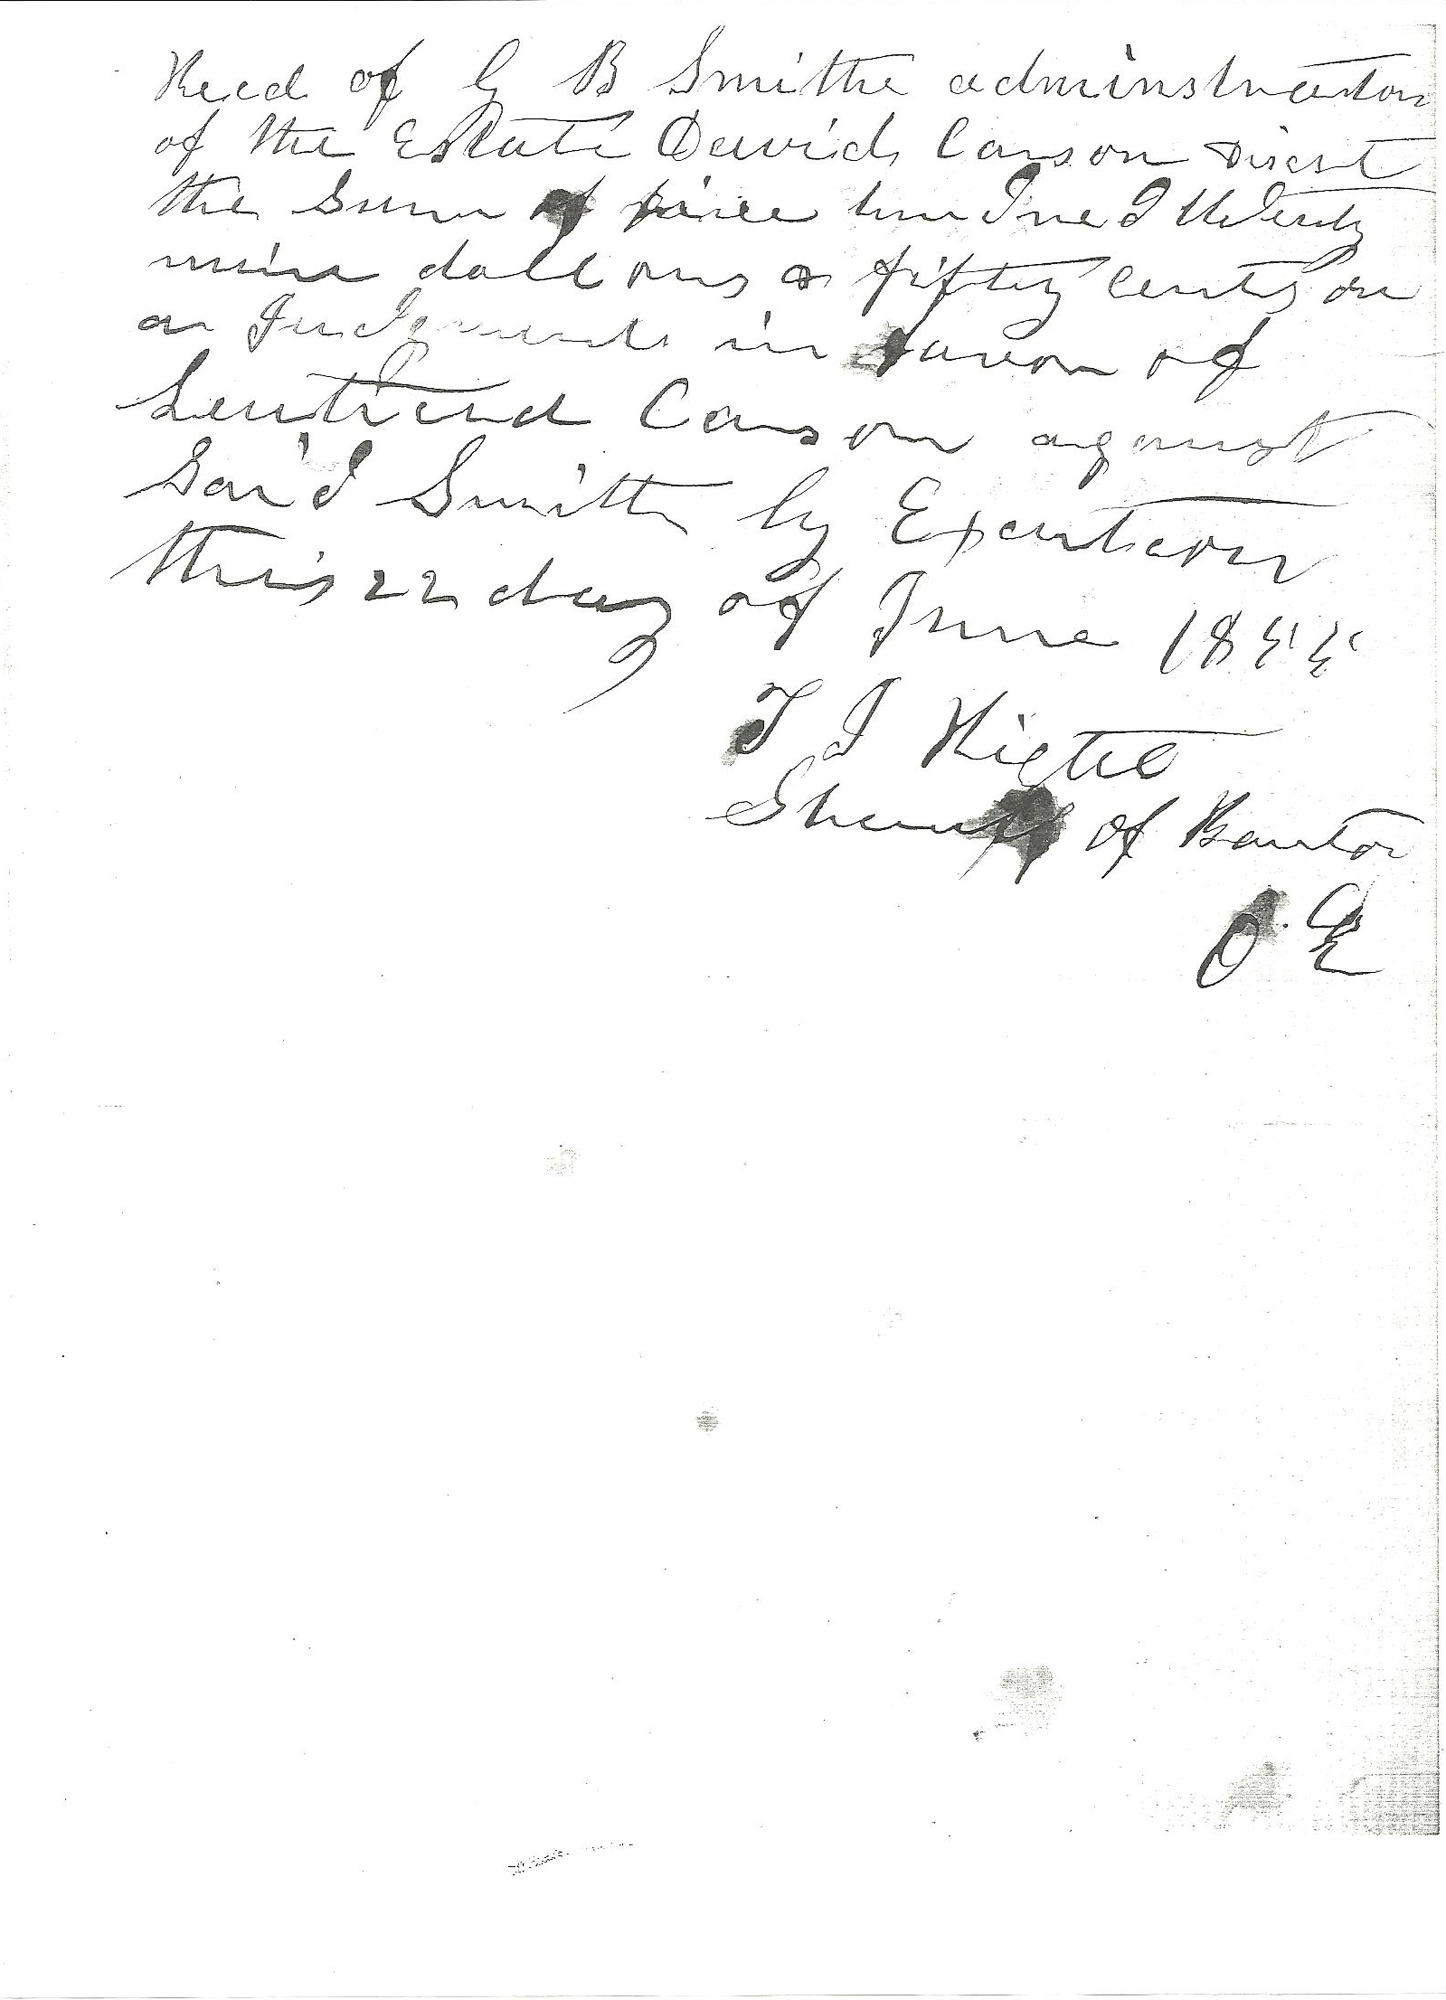 Recd of G B Smithe adminstrator
of the Estate David Carson Decst
the Sum of five hundred & thirty
nine dollars & fifty Cents on
a Judgment in favor of
Carson against
Said Smith by Execution
this 22 day of June 1855
T J
Sheriff of